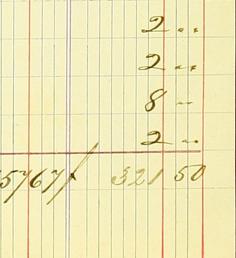 2 ..
2 ..
8 ..
2 ..
5767 321 50